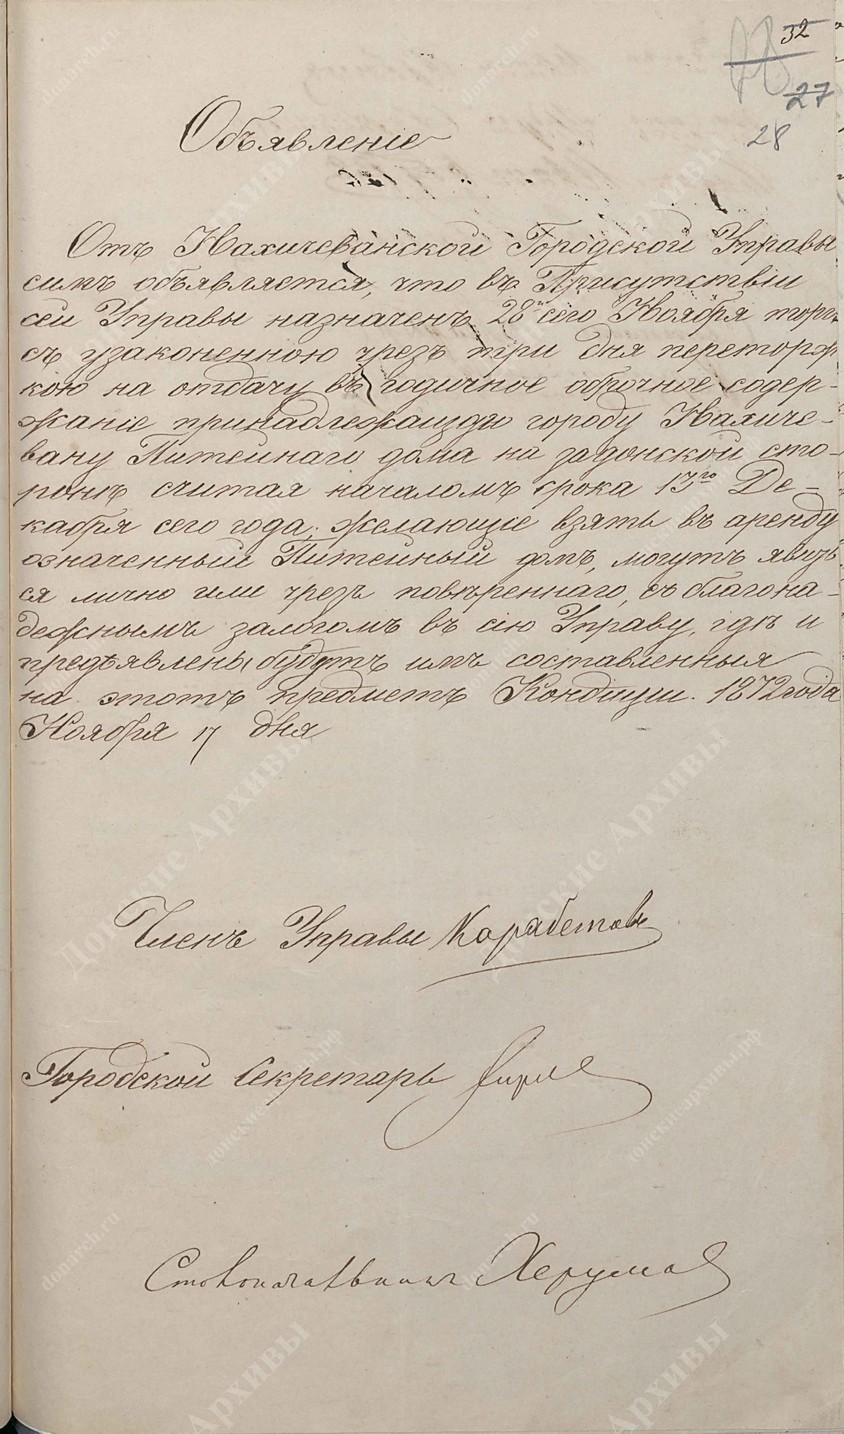 32
27
28
Объявленіе
Отъ Нахичеванской Городской Управы
симъ объявляется, что въ Присутствіи
сей Управы назначенъ 28го сего Ноября торгъ
съ узаконенною чрезъ три дня переторж
кою на отдачу въ годичное оброчное содер-
жаніе принадлежащаго городу Нахиче-
вану Питейнаго дома на задонской сто-
ронѣ считая началомъ срока 13го Де-
кабря сего года. Желающіе взять въ аренду
означенный Питейный домъ, могутъ явить
ся лично или чрезъ повѣреннаго, съ благона-
дежнымъ залогомъ въ сію Управу, гдѣ и
предъявлены будутъ имъ составленныя
на этотъ предметъ Кондиціи. 1872 года
Ноября 17 дня
Членъ Управы Карабетовъ
Городской Секретарь
Столоначальникъ